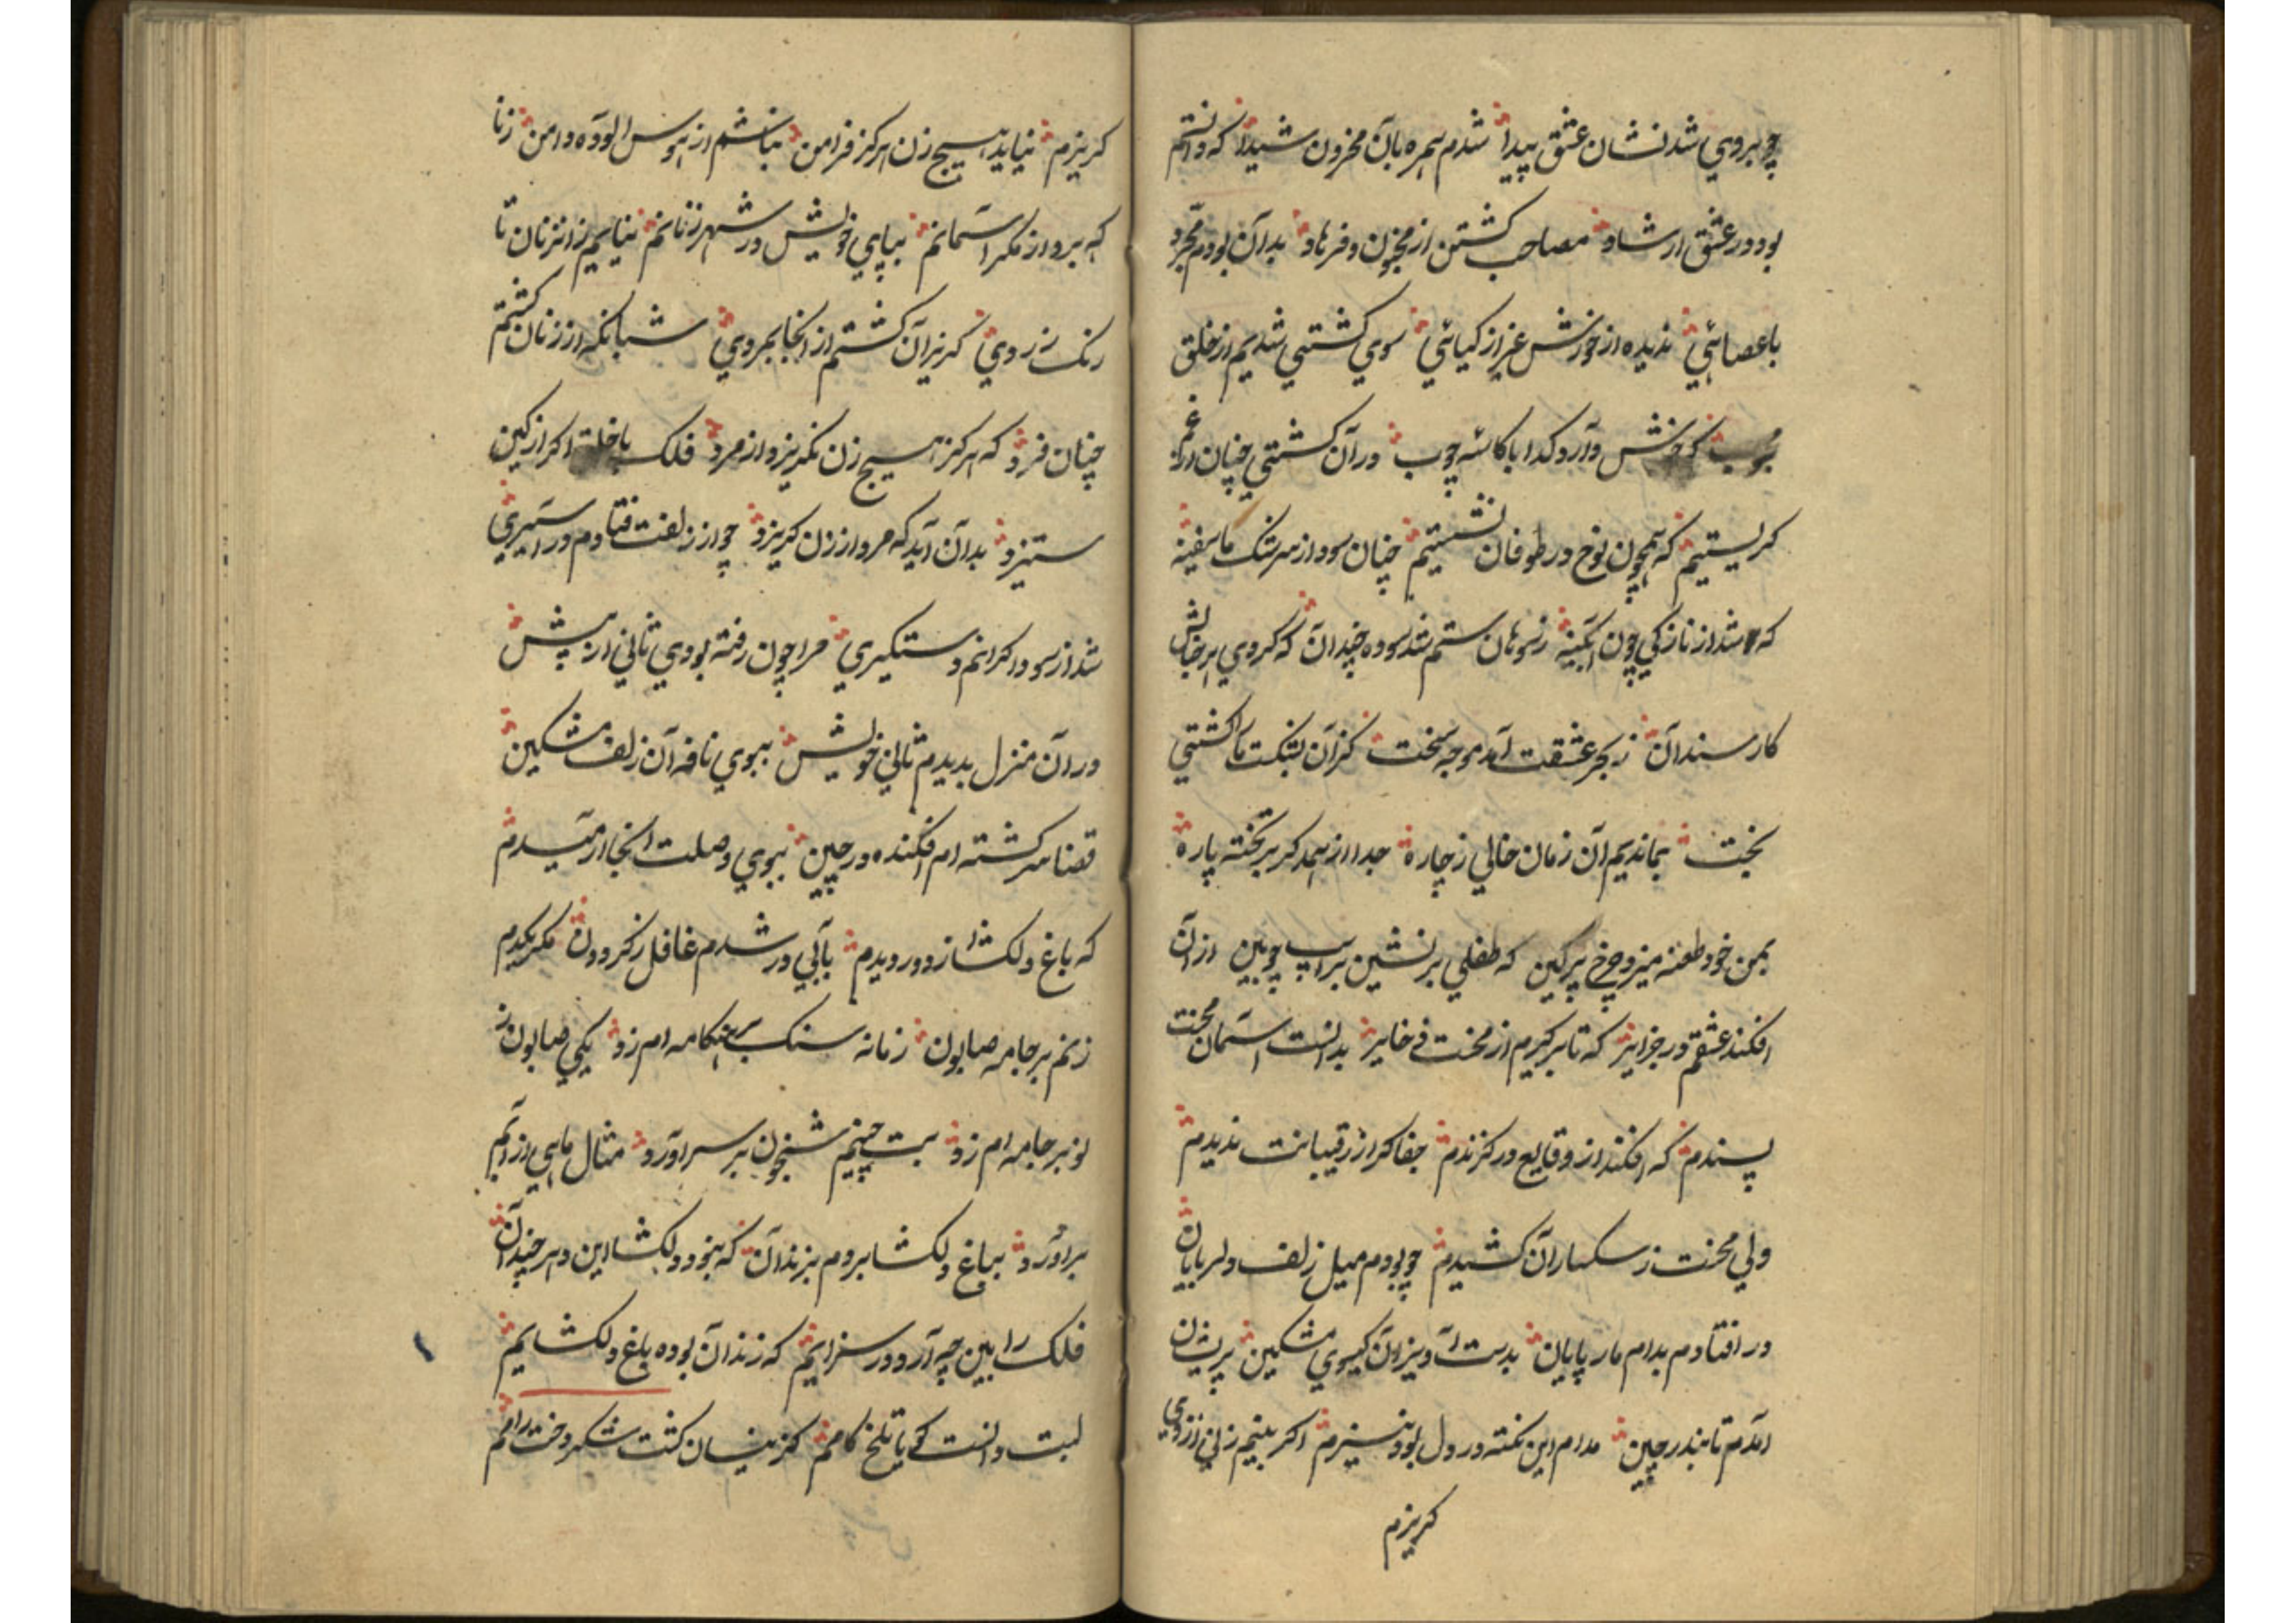 چو بروی شد نشان عشق پیدا شدم همره بآن محزون شیدا که دانستم
بود در عشق ارشاد مصاحب کشتن از مجنون و فرهاد بدان بودم مجرد
با عصائی ندیده از خورش غیر از کیائی سوی کشتی شدیم از خلق
که خش دارد کدا با کاسه چوب در آن کشتی چنان از غم
کریستیم که همچون نوح در طوفان نشستیم چنان سود از سرشک ما سفینه
که شد از نازکی چون ابکینه ز سوهان ستم شد سوده چندان که کردی بر
کار سندان ز بحر عشقت آمد موجه سخت کزان بشکست ما را کشتی
بخت بماندیم آن زمان خالی ز چاره جدا از همدکر بر تخته پاره
بمن خود طعنه میزد چرخ پرکین که طفلی بر نشین بر اسپ چوبین از آن
افکند عشقم در جزایر که تا بر کیرم از محنت ذخایر بدانست آسمان محنت
پسندم که افکند از وقایع در کزندم جفا کر از رقیبانت ندیدم
ولی محنت ز سکساران کشیدم چو بودم میل زلف دلربایان
در افتادم بدام مار پایان بدست آویز آن کیسوی مشکین پریشان
آمدم تا بندر چین مدام این نکته در دل بود نیزم اکر بینم زنی از وی
کریزم
کریزم نیاید هیچ زن هرکز فرامن نباشم از هوس الوده دامن زنا
که برد از مکر آسمانم بپای خویش در شهر زنانم نیایم از زنان تا
رنک زردی کریزان کشتم از انجا بمردی شبانکه از زنان کشتم
چنان فرد که هرکز هیچ زن نکریزد از مرد فلک با خلق اکر از کین
ستیزد بدان آید که مرد از زن کریزد چو از زلفت فتادم در اسیری
شد از سودا کرانم دستکیری مرا چون رفته بودی ثانی از پیش
در آن منزل بدیدم ثانی خویش ببوی نافه آن زلف مشکین
قضا سرکشته ام افکنده در چین ببوی وصلت انجا ارمیدم
که باغ دلکشا از دور دیدم بآبی در شدم غافل ز کردون مکر یکدم
زنم بر جامه صابون زمانه سنک بر هنکامه ام زد یکی صابون ز
نو بر جامه ام زد بت چینم شبیخون بر سر آورد مثال ماهی از آبم
برآورد بباغ دلکشا بردم بزندان که بنمود دلکشا این در چندان
فلک را بین چه آرد در سزایم که زندان بوده باغ دلکشایم
لبت دانست کویا تلخ کامم کزینسان کشت شکر دخت رامم